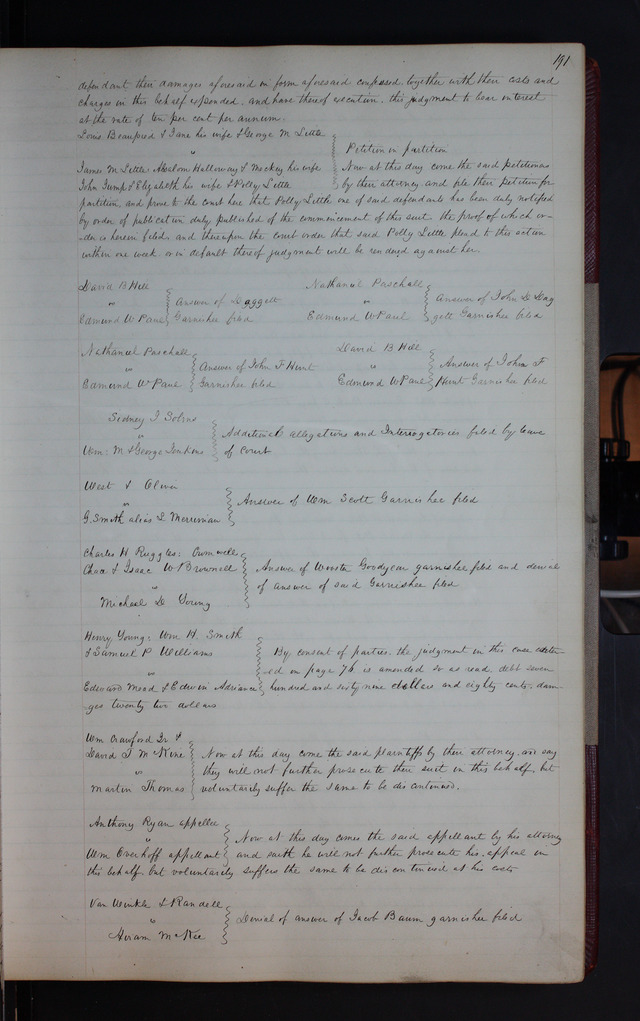 191
defendant their damages aforesaid in form aforesaid confessed, together with their costs and
charges in this behalf expended, and have thereof execution, this judgment to bear interest
at the rate of ten per cent per annum.
Louis Beaupied & Jane his wife & George M Little
vs
James M Little, Absalom Halloway & Mockey his wife
John Jump & Elizabeth his wife & Polly Little
Petition in partition
Now at this day come the said petitioners
by their attorney and file their petition for
partition, and prove to the court here that Polly Little one of said defendants has been duly notified
by order of publication duly published of the commencement of this suit the proof of which or-
der is herein filed, and thereupon the court order that said Polly Little plead to this action
within one week or in default thereof judgment will be rendered against her.
David B Hill
vs
Edmund W Paul
Answer of Daggett
Garnishee filed
Nathaniel Paschall
vs
Edmund W Paul
Answer of John D Dag
gett Garnishee filed
Nathaniel Paschall
vs
Edmund W Paul
Answer of John F Hunt
Garnishee filed
David B Hill
vs
Edmund W Paul
Answer of John F
Hunt Garnishee filed
Sidney J
vs
Wm: M & George Jenkins
Additional allegations and Interrogatories filed by leave
of court
West & Oliver
vs
G. Smith alias S Merriman
Answer of Wm Scott Garnishee filed
Charles H Ruggles:
Chace & Isaac W Brownell
vs
Michael D Young
Answer of Wooster Goodyear garnishee filed and denial
of answer of said Garnishee filed
Henry Young, Wm H. Smith
& Samuel P Williams
vs
Edward Mead & Edwin Adriance
By consent of parties, the judgment in this case enter
ed on page 76 is amended so as read, debt seven
hundred and sixty nine dollars and eighty cents, dam-
ges twenty two dollars
Wm Crawford Jr &
David T McKine
vs
Martin Thomas
Now at this day come the said plaintiffs by their attorney and say
they will not further prosecute their suit in this behalf, but
voluntarily suffer the same to be discontinued.
Anthony Ryan appellee
vs
Wm Overhoff appellant
Now at this day comes the said appellant by his attorney
and saith he will not further prosecute his appeal in
this behalf but voluntarily suffers the same to be discontinued at his costs
Van Winkle & Randell
vs
Hiram McKee
Denial of answer of Jacob Baum garnishee filed